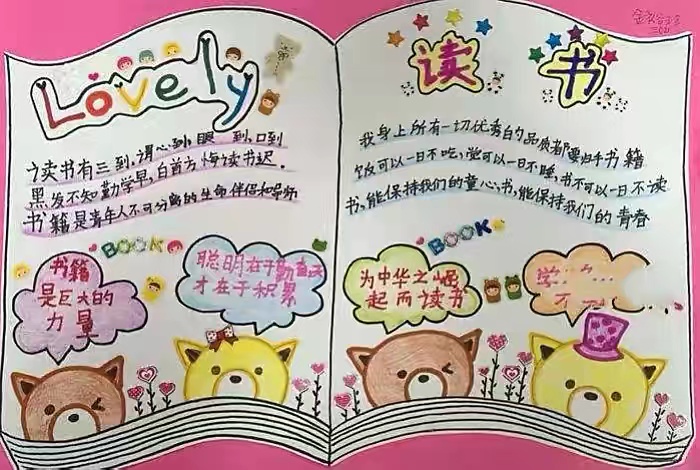 Lovely
读书有三到，谓心到，眼到，口到
黑发不知勤学早，白首方悔读书迟。
书籍是青年人不可分离的生命伴侣和导师
BOOK
书籍
是巨大的
力量
聪明在于勤奋，天
才在于积累
读书
我身上所有一切优秀的品质都要归于书籍
饭可以一日不吃，觉可以一日不睡，书不可以一日不读
书，能保持我们的童心，书，能保持我们的青春
BOOK
为中华之崛
起而读书
学
不一